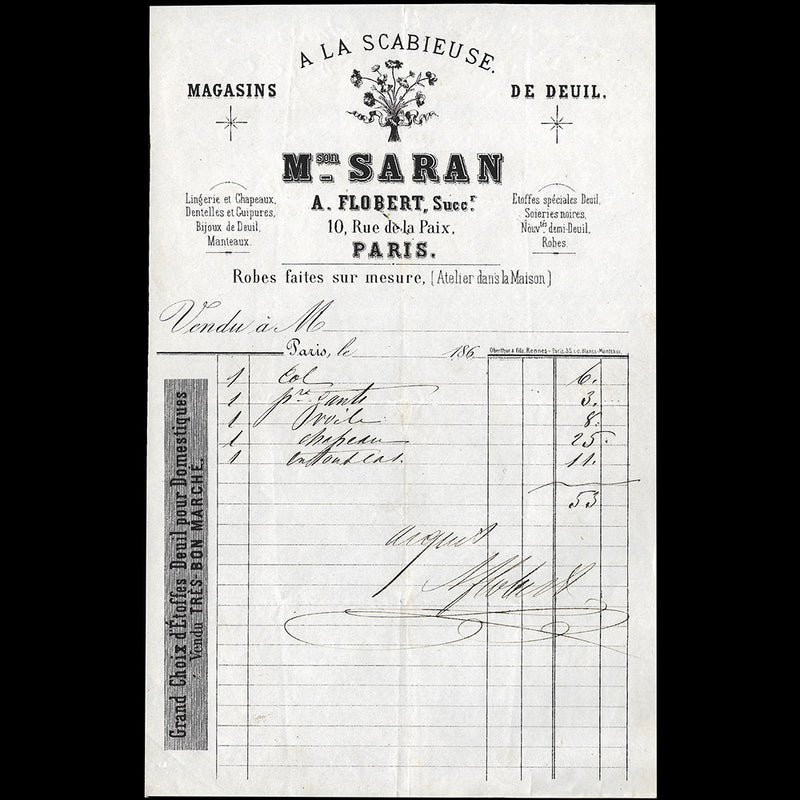 A LA SCABIEUSE.
MAGASINS DE DEUIL.
Mson SARAN
A. FLOBERT, Succr
10, Rue de la Paix.
PARIS.
Lingerie et Chapeaux,
Dentelles et Guipures,
Bijoux de Deuil,
Manteaux.
Etoffes spéciales Deuil,
Soieries noires,
Nouvtés demi-Deuil,
Robes.
Robes faites sur mesure, (Atelier dans la Maison)
Vendu à M
Paris, le 186
Oberthur & Fils, Rennes - Paris, 35 r. d. Blancs-Manteaux.
1 Col 6.
1 pre Gants 3.
1 Voile 8.
1 chapeau 25.
1 entoutcas. 11.
53
acquit
A flobert
Grand Choix d'Étoffes Deuil pour Domestiques
Vendu TRÈS BON MARCHÉ.